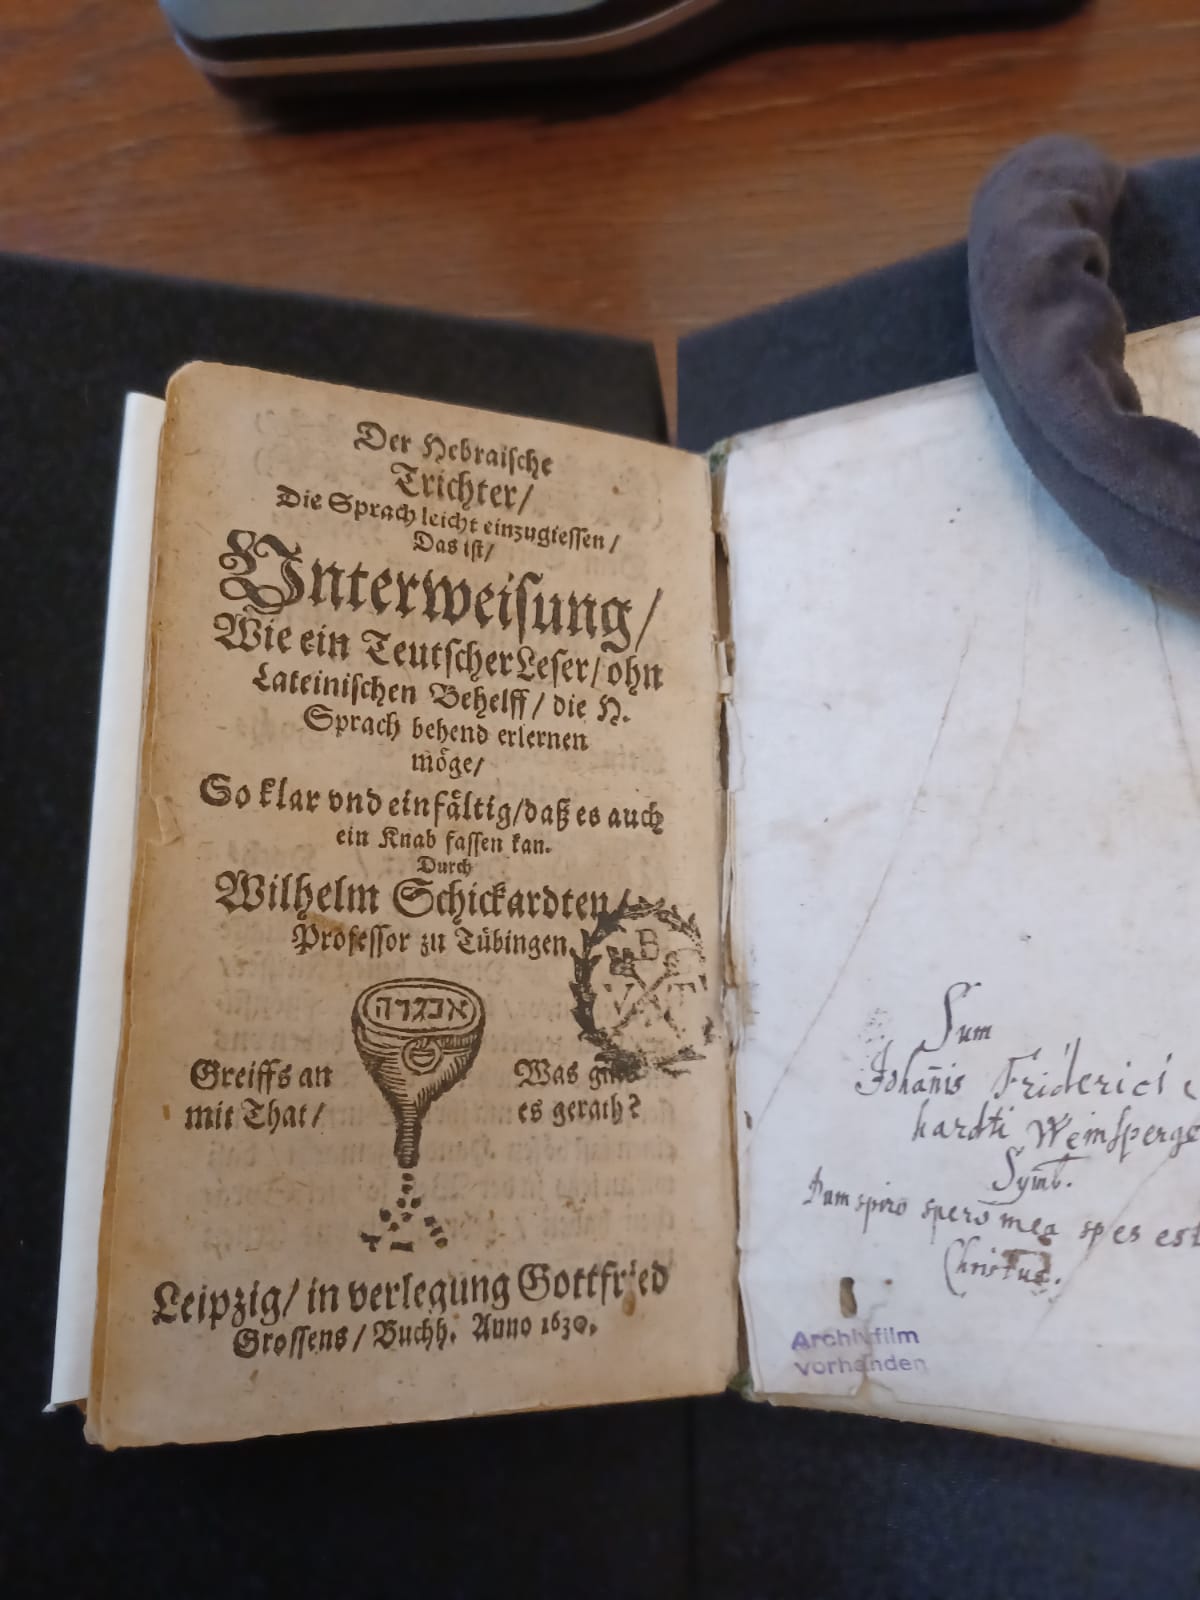 Der Hebraische
Trichter/
Die Sprach leicht einzugiessen/
Das ist/
Vnterweisung/
Wie ein Teutscher Leser/ ohn
Lateinischen Behelff/ die H.
Sprach behend erlernen
möge/
So klar vnd einfältig/ daß es auch
ein Knab fassen kan.
Durch
Wilhelm Schickardten/
Professor zu Tübingen.
B
V T
אכגרה
Greiffs an
mit That/
Was
es gerath?
Leipzig/ in verlegung Gottfried
Grossens/ Buchh. Anno 1630.
Sum
Johañis Friderici
hardti Weinsperge
Symb.
Dum spiro spero mea spes est
Christus.
Archivfilm
vorhanden